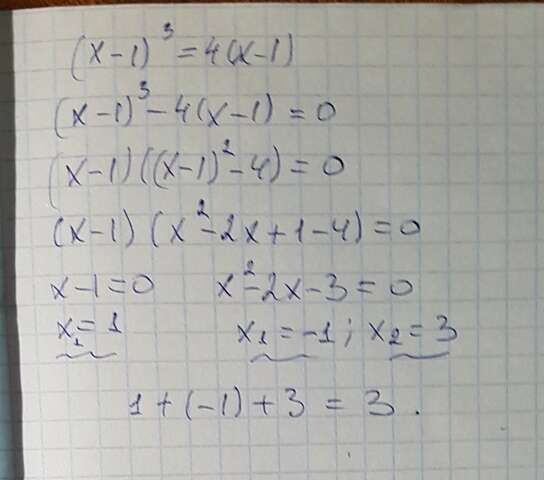 (x-1)³ = 4(x-1)
(x-1)³ - 4(x-1) = 0
(x-1)((x-1)² - 4) = 0
(x-1)(x² - 2x + 1 - 4) = 0
x - 1 = 0 x² - 2x - 3 = 0
x₁ = 1 x₁ = -1; x₂ = 3
1 + (-1) + 3 = 3.